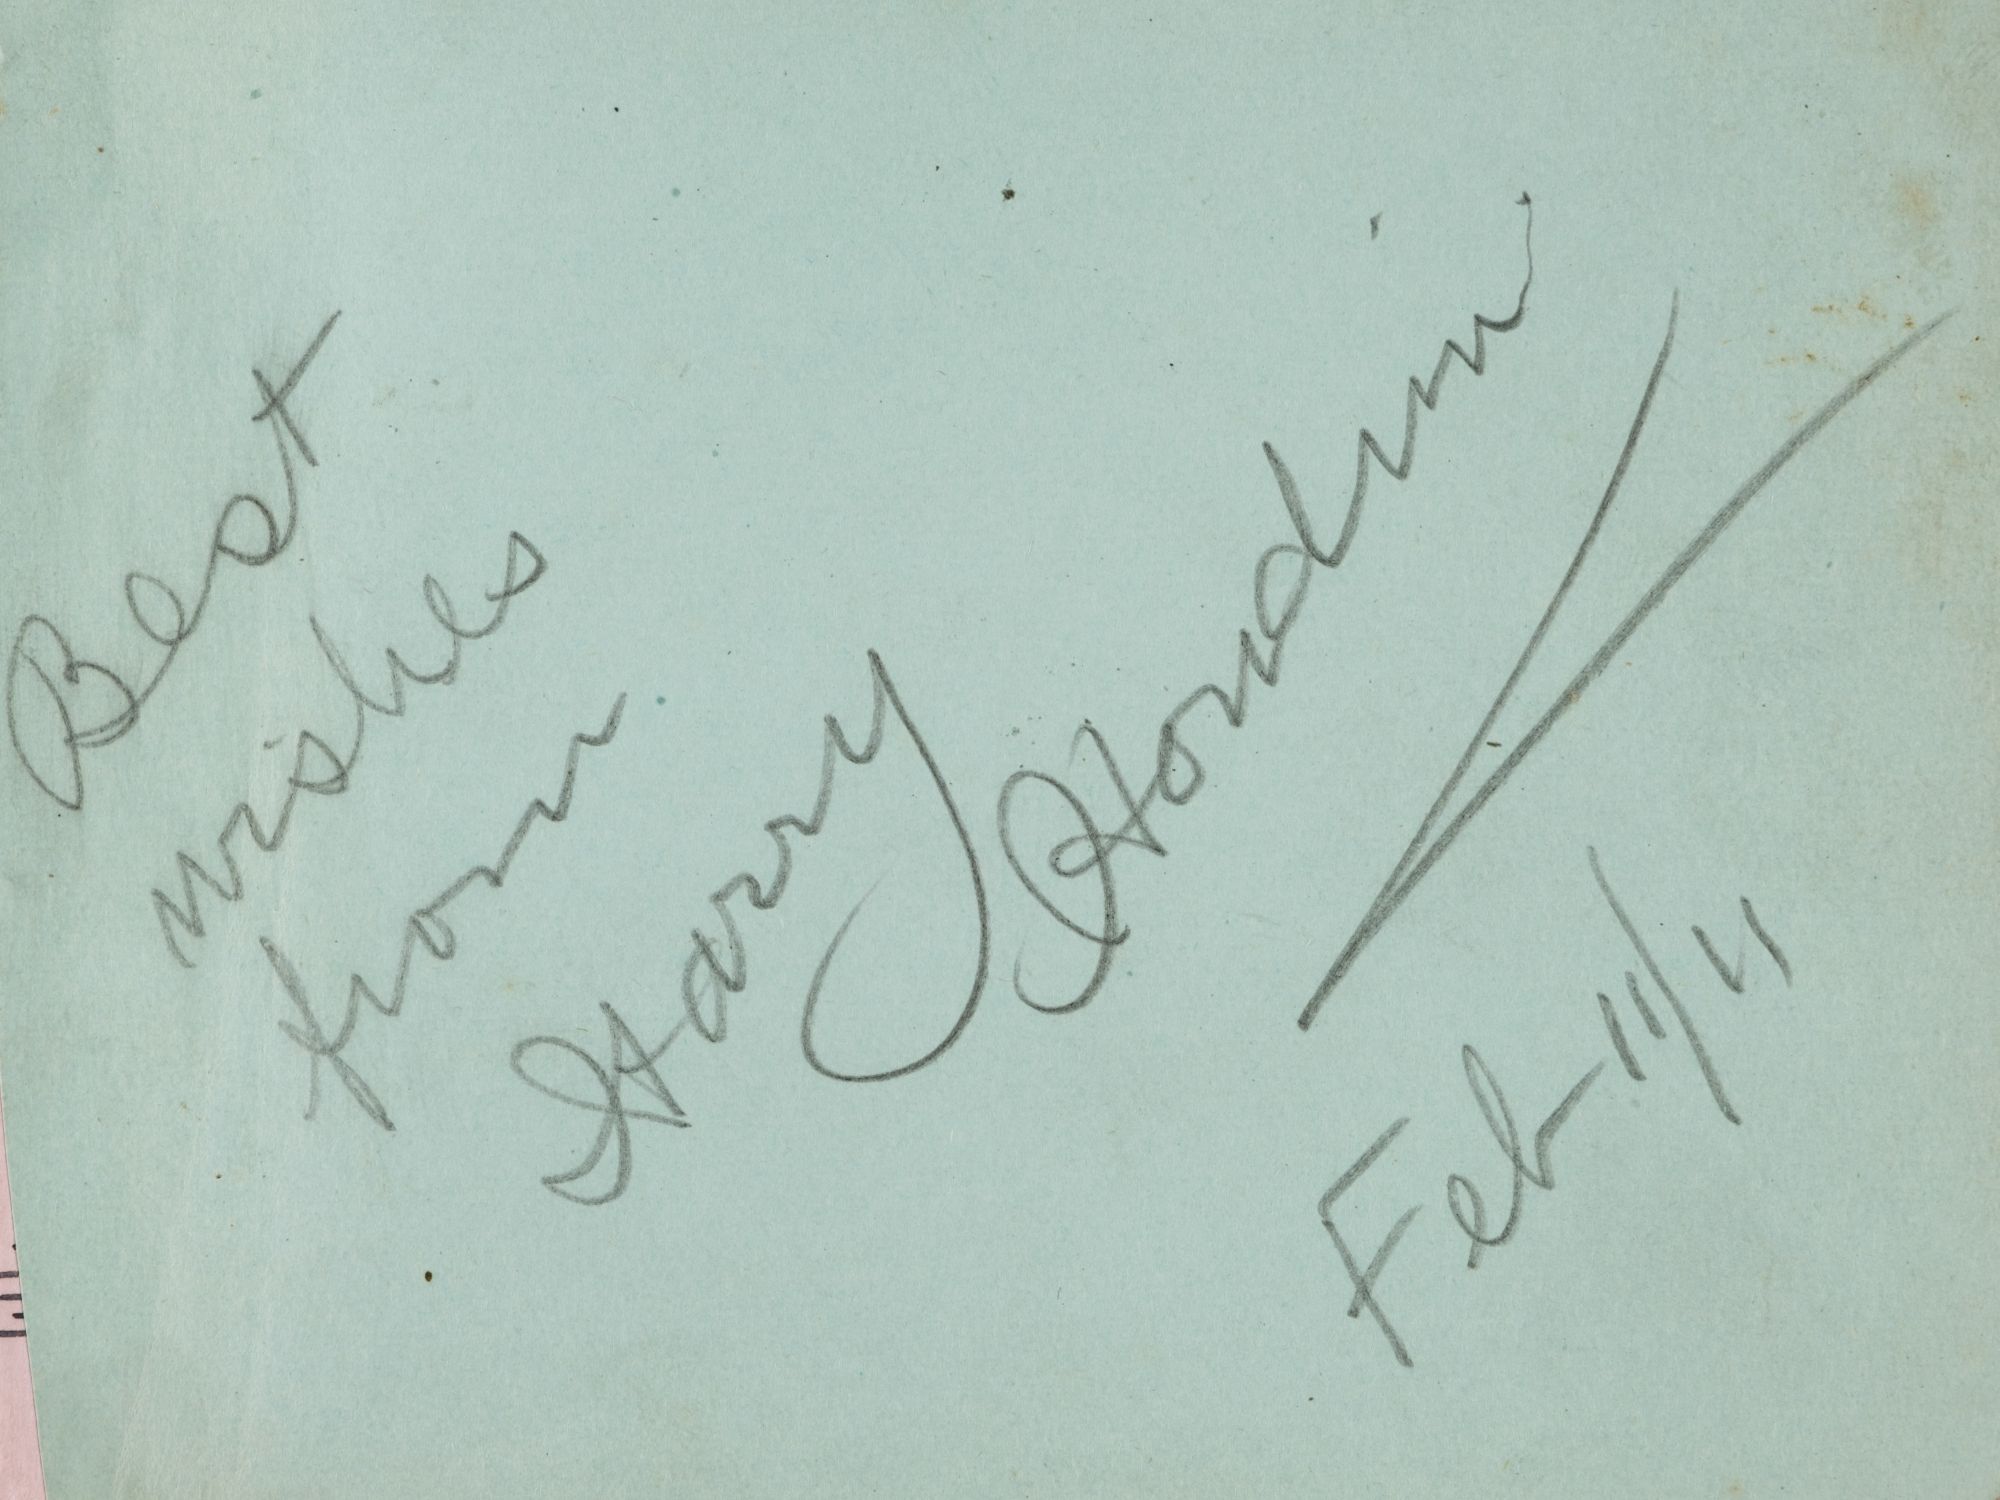 Best
wishes
from
Harry
Houdini
Feb 11/11